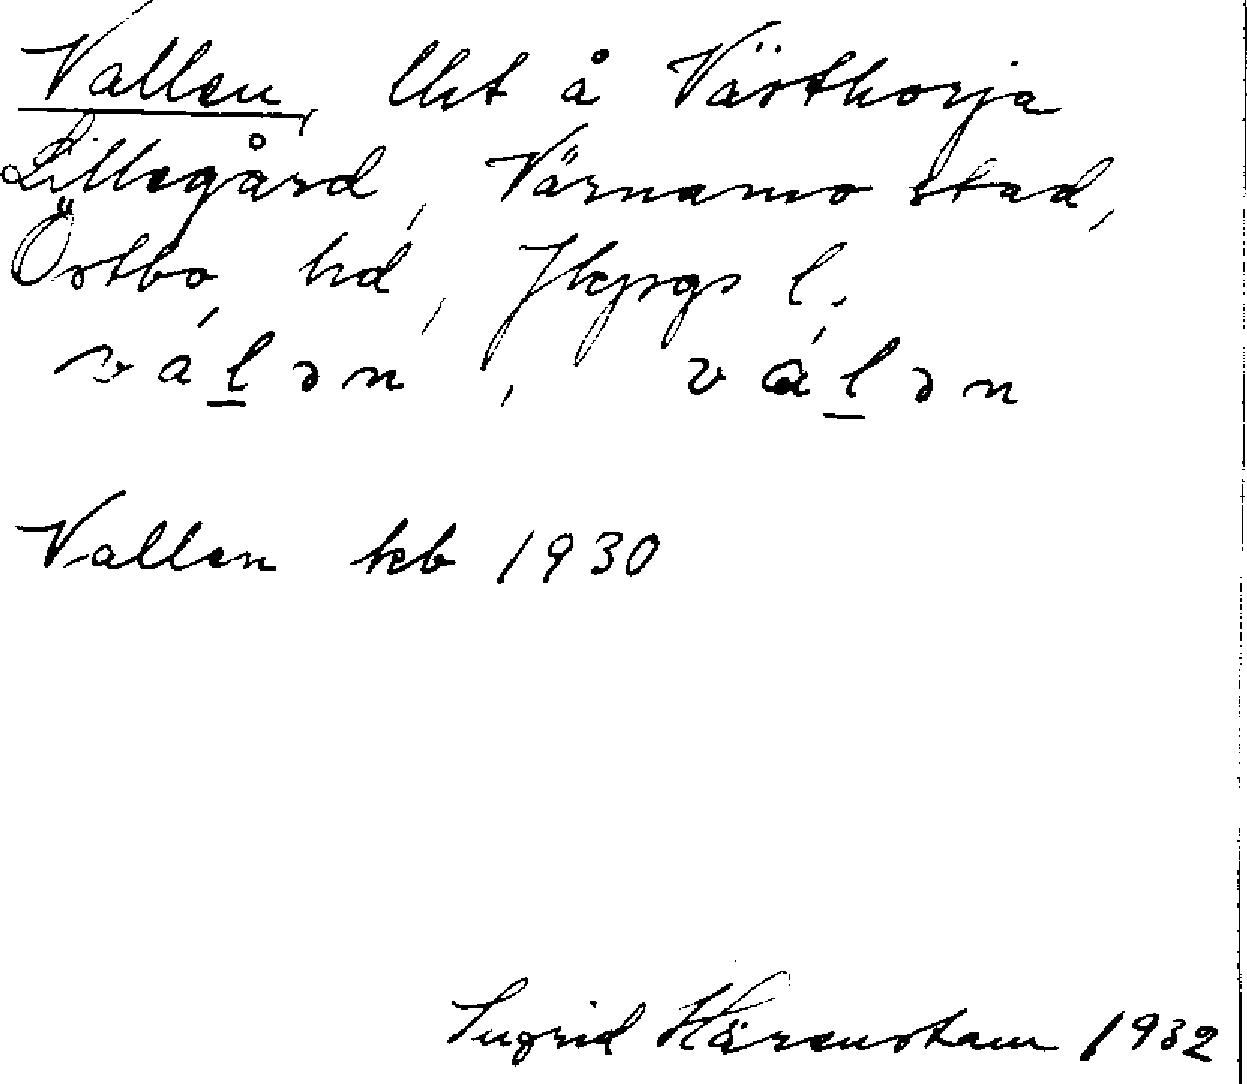 Vallen, lht å Västhorja
Lillegård, Värnamo stad,
Östbo hd, Jkpgs l.
válən, válən
Vallen kb 1930
Ingrid Härenstam 1932